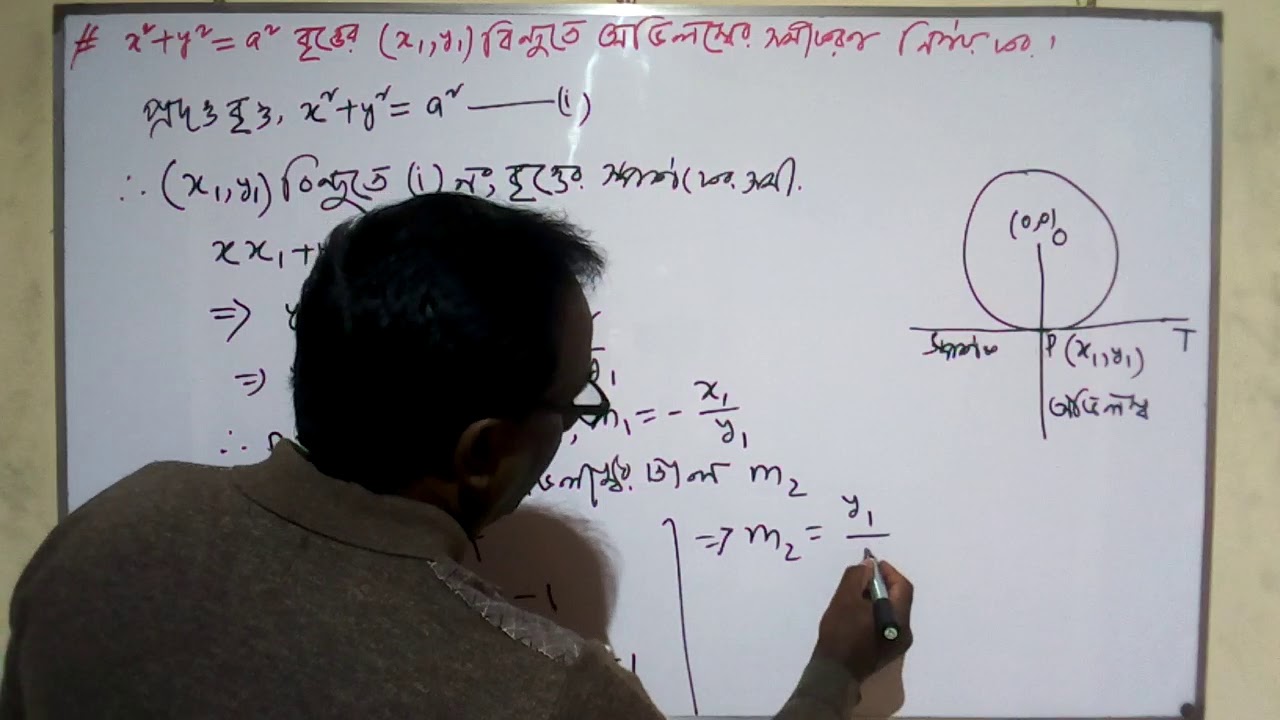 # x²+y²=a² বৃত্তের (x₁,y₁) বিন্দুতে অভিলম্বের সমীকরণ নির্ণয় কর।
প্রদত্ত বৃত্ত, x²+y²= a² —— (i)
∴ (x₁,y₁) বিন্দুতে (i) নং বৃত্তের স্পর্শকের সমী.
xx₁+
⇒
⇒
∴
m₁ = - x₁/y₁
ঢাল m₂
-1
⇒ m₂ = y₁/
(0,0) O
স্পর্শক P (x₁,y₁) T
অভিলম্ব